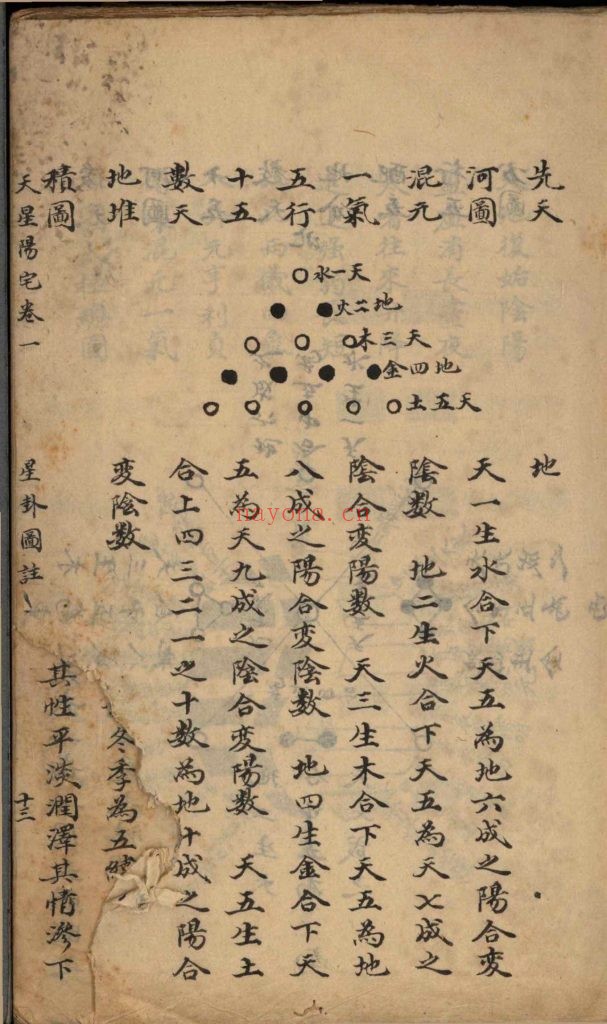 先天
河圖
混元
一氣
五行
十五
數天
地堆
積圖
天一水
地二火
天三木
地四金
天五土
地
天一生水合下天五為地六成之陽合変
陰数　地二生火合下天五為天七成之
陰合変陽数　天三生木合下天五為地
八成之陽合変陰数　地四生金合下天
五為天九成之陰合変陽数　天五生土
合上四三二一之十数為地十成之陽合
変陰数
冬季為五
其性平淡潤澤其情滲下
天星陽宅卷一
星卦圖註
十三
nayona.cn